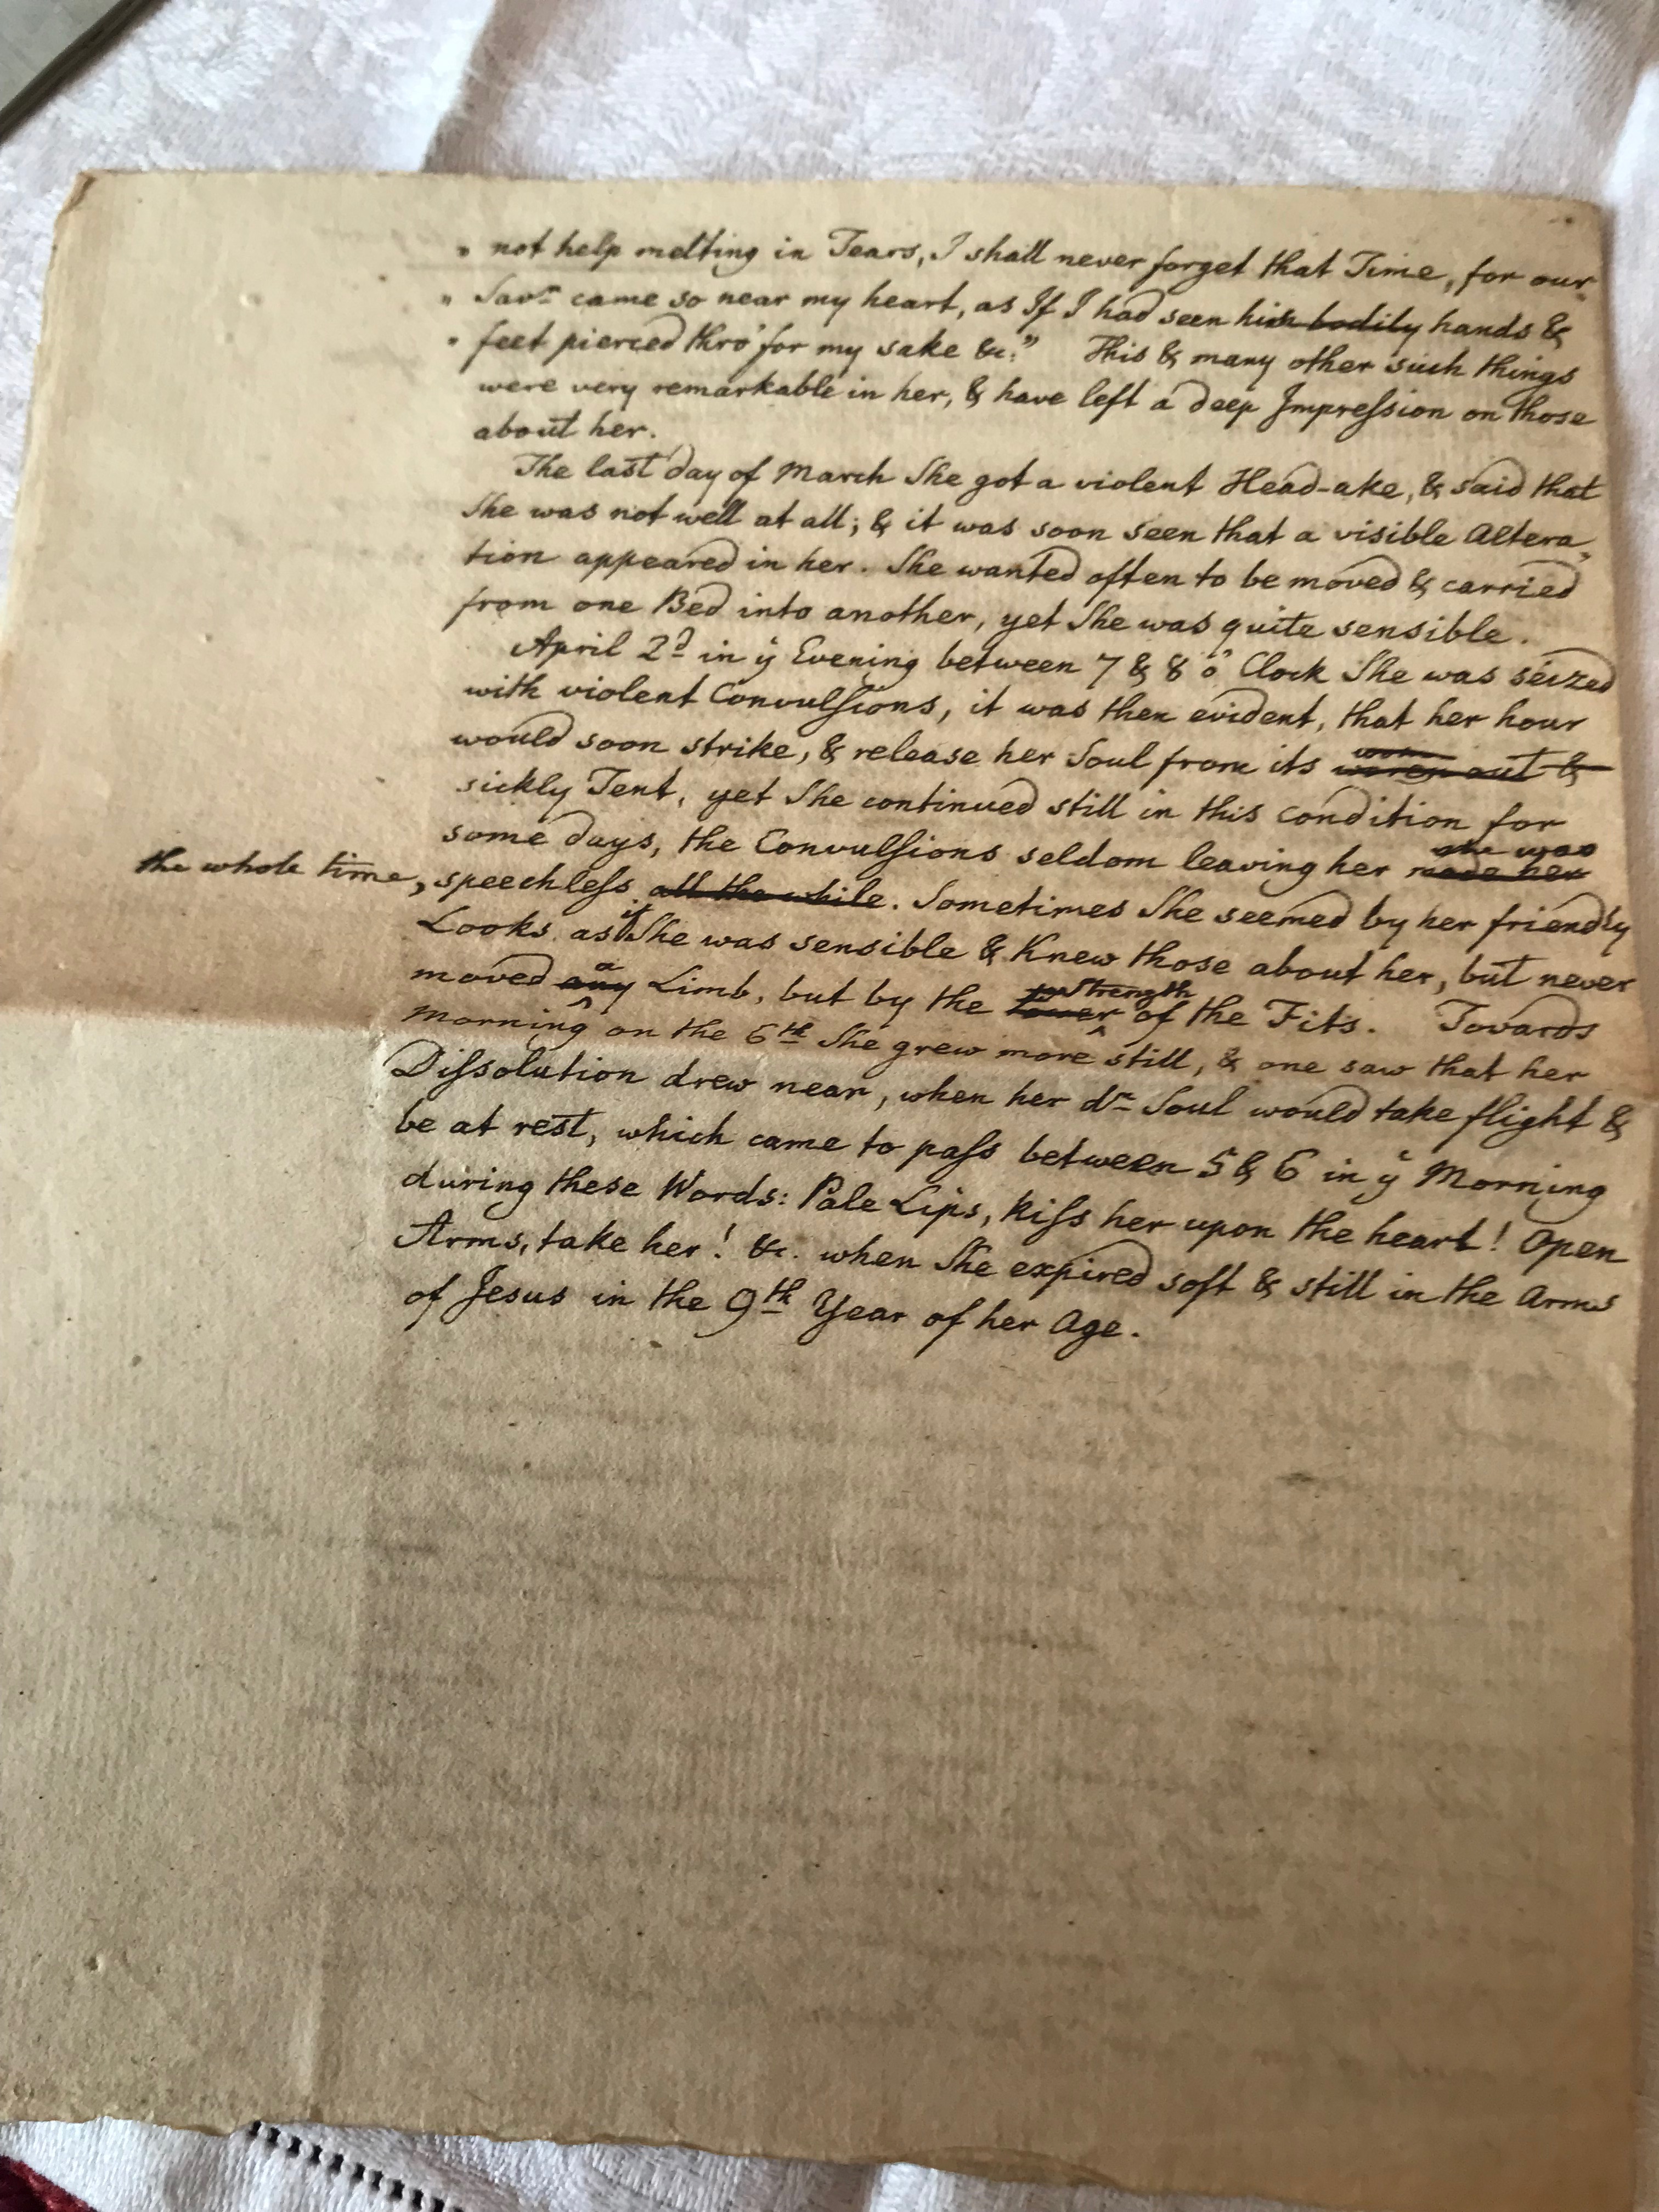 " not help melting in Tears, I shall never forget that Time, for our
" Savr. came so near my heart, as If I had seen his bodily hands &
" feet pierced thro' for my sake &c." This & many other such things
were very remarkable in her, & have left a deep Impreſsion on those
about her.
The last day of March She got a violent Head-ake, & said that
She was not well at all; & it was soon seen that a visible Altera„
tion appeared in her. She wanted often to be moved & carried
from one Bed into another, yet She was quite sensible.
April 2d in ÿ Evening between 7 & 8 o' Clock She was seized
with violent Convulſions, it was then evident, that her hour
would soon strike, & release her Soul from its woren out &
sickly Tent, yet She continued still in this Condition for
some days, the Convulſions seldom leaving her made her
she was
the whole time, speechleſs all the while. Sometimes She seemed by her friendly
Looks as if She was sensible & Knew those about her, but never
moved any a Limb, but by the Power Strength of the Fits. Towards
Morning on the 6th She grew more still, & one saw that her
Diſsolution drew near, when her dr Soul would take flight &
be at rest, which came to paſs between 5 & 6 in ÿ Morning
during these Words: Pale Lips, Kiſs her upon the heart! Open
Arms, take her! &c. when She expired soft & still in the Arms
of Jesus in the 9th Year of her Age.